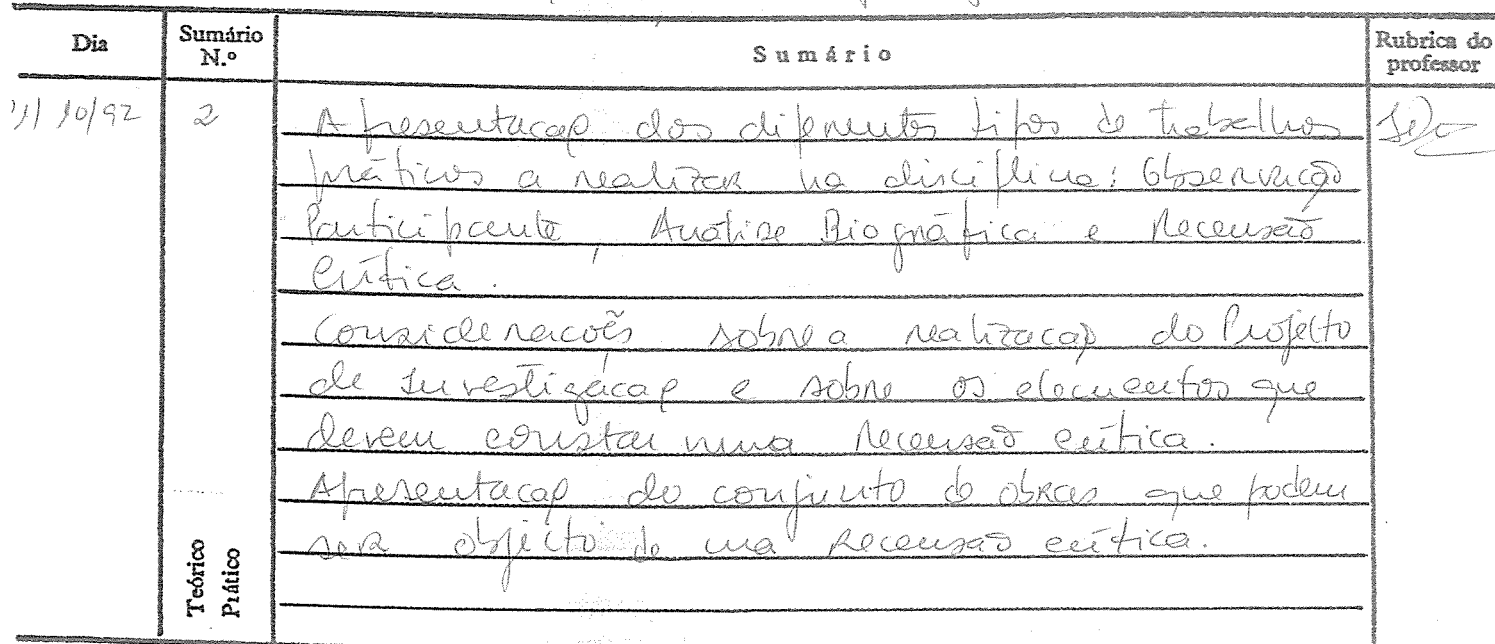 Dia Sumário N.º Sumário Rubrica do professor
10/92 2 Apresentação dos diferentes tipos de trabalhos
práticos a realizar na disciplina: Observação
Participante, Análise Biográfica e Recensão
Crítica.
Considerações sobre a realização do Projecto
de Investigação e sobre os elementos que
devem constar numa Recensão crítica.
Apresentação do conjunto de obras que podem
ser objecto de uma Recensão crítica.
Teórico
Prático